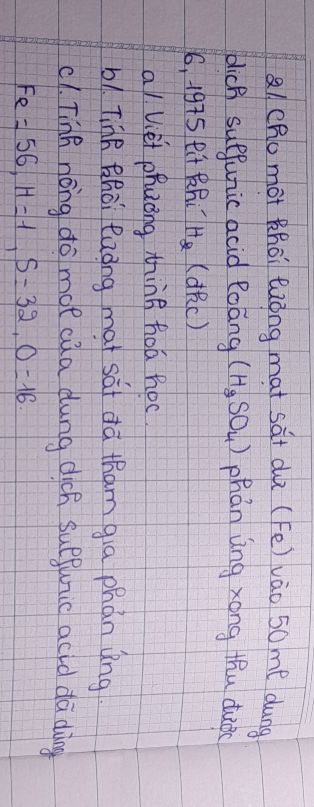 2/ Cho một khối lượng mạt sắt dư (Fe) vào 50 ml dung
dịch sulfuric acid loãng (H₂SO₄) phản ứng xong thu được
6,1975 lít khí H₂ (đkc)
a/. Viết phương trình hoá học.
b/. Tính khối lượng mạt sắt đã tham gia phản ứng.
c/. Tính nồng độ mol của dung dịch sulfuric acid đã dùng
Fe = 56, H = 1, S = 32, O = 16.